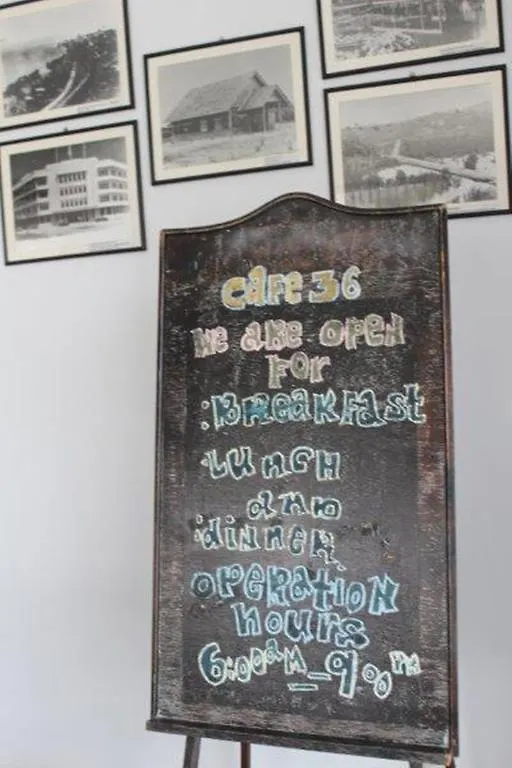 cafe 36
we are open
for
:Breakfast
·Lunch
and
:dinner
operation
hours
6:00AM_9:00PM